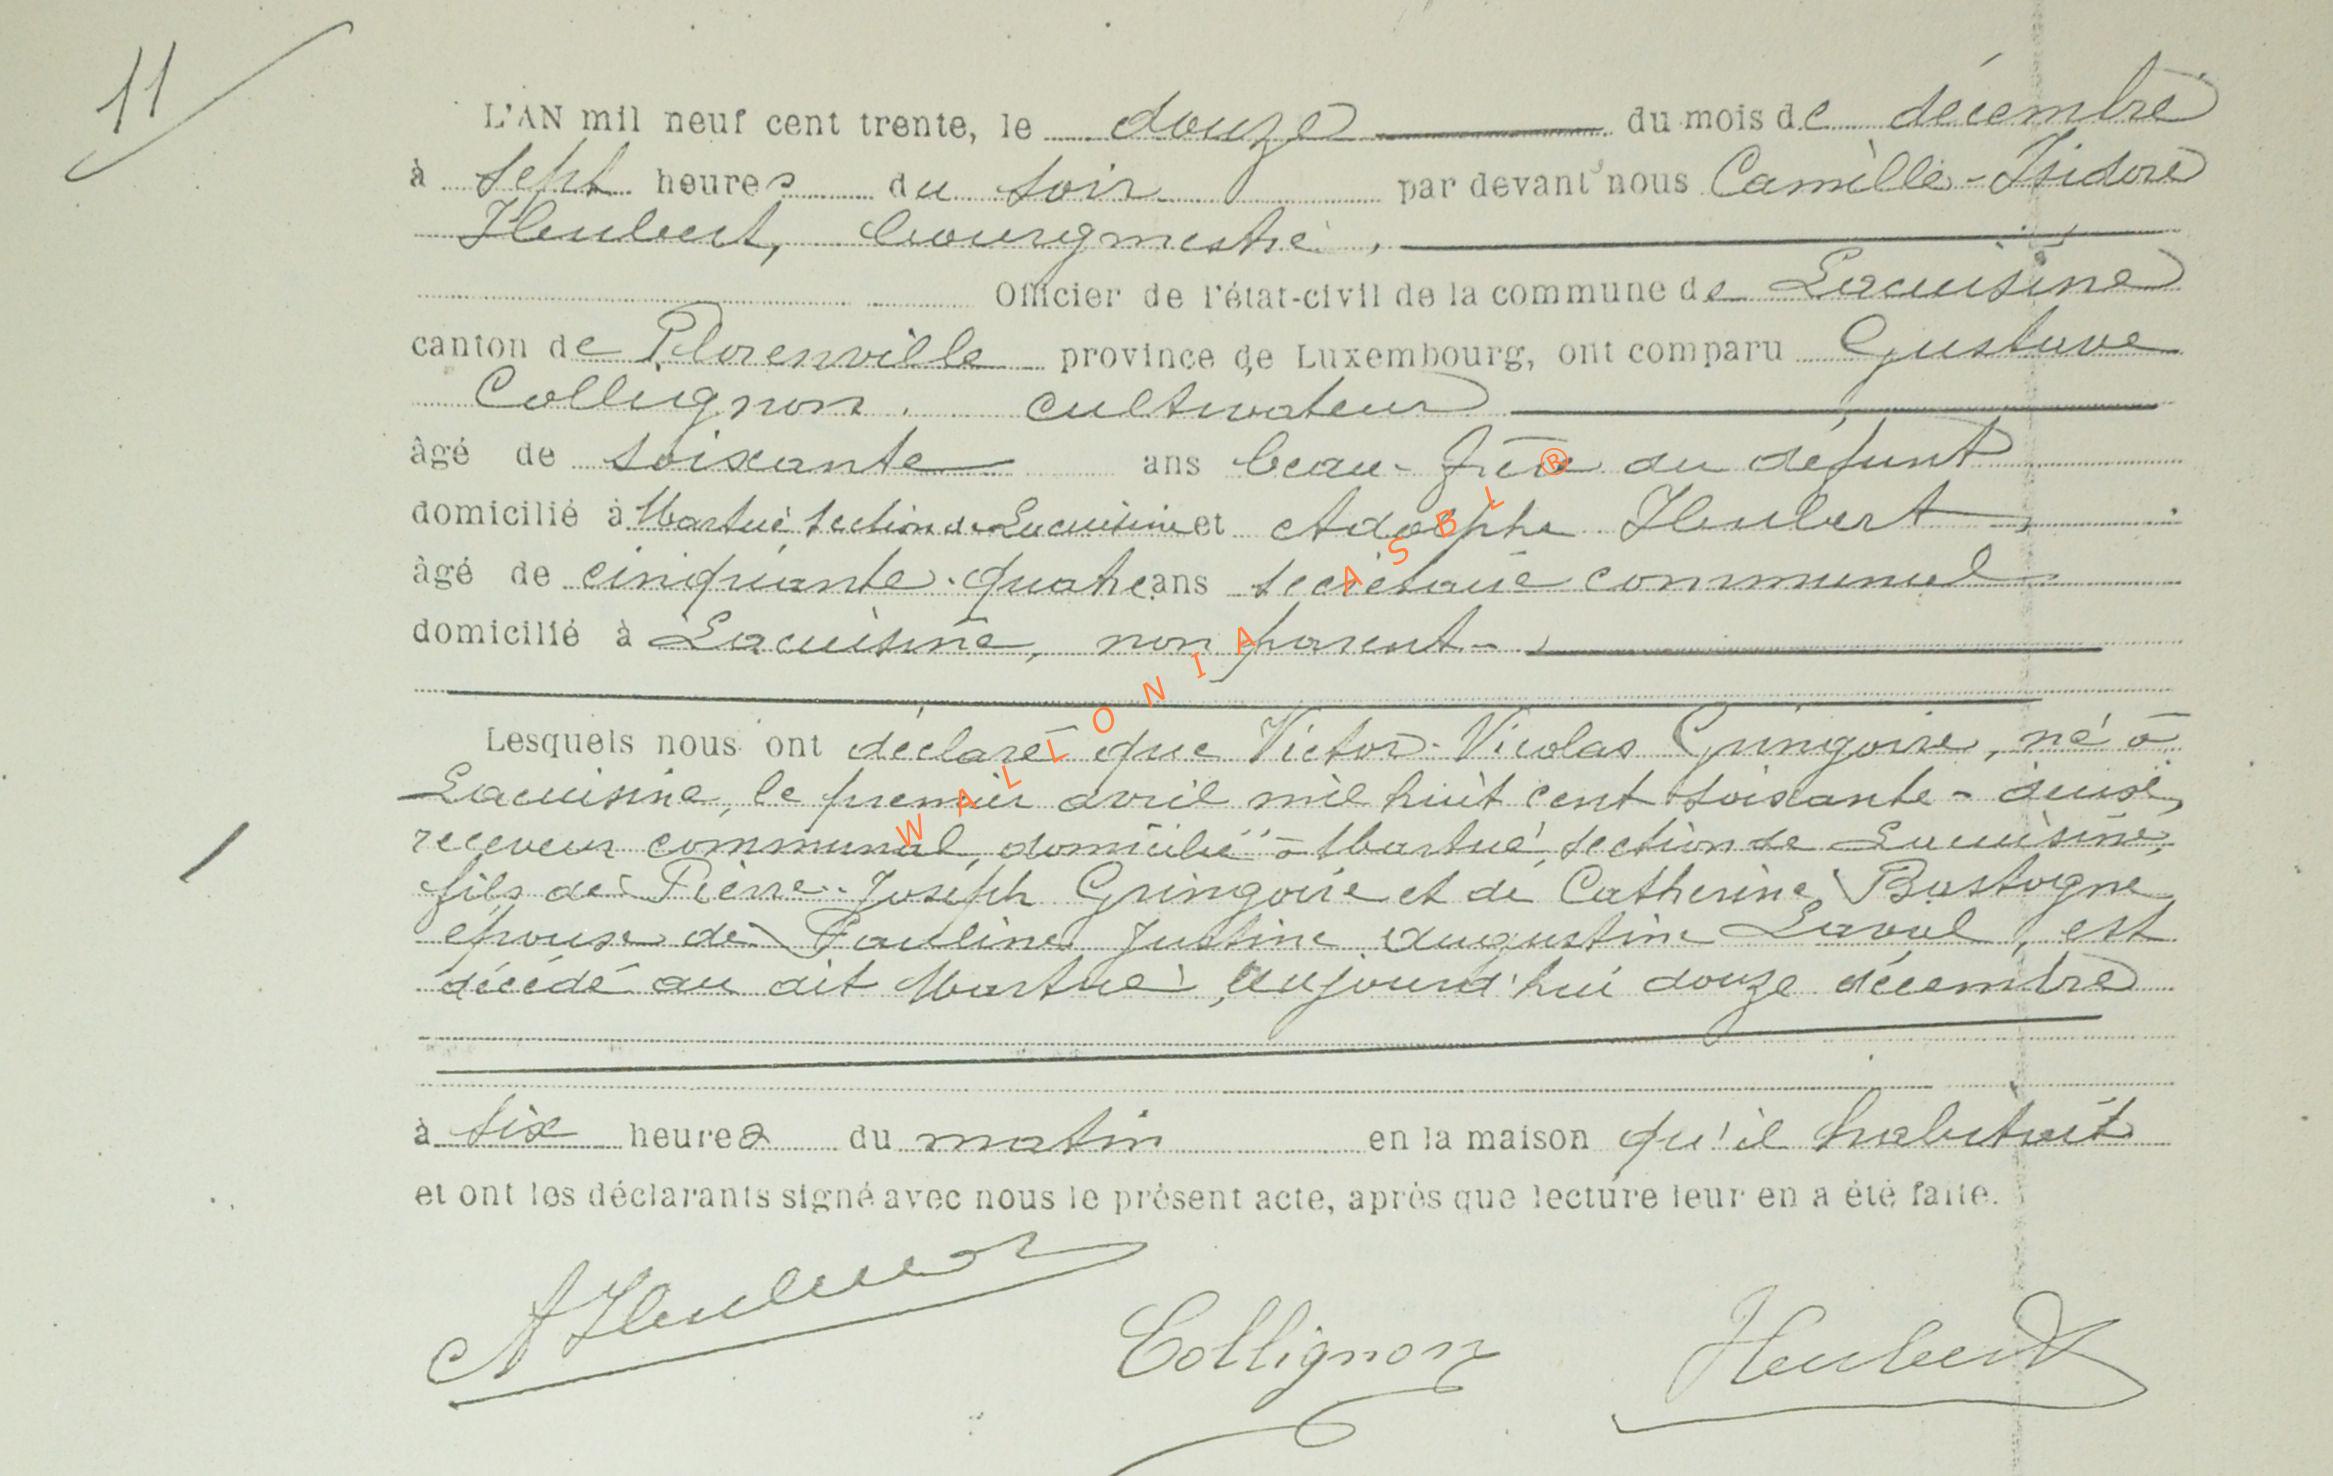 11
L'AN mil neuf cent trente, le douze du mois de décembre
à sept heures du soir par devant nous Camille-Isidore
Heubert, bourgmestre,
Officier de l'état-civil de la commune de Lacuisine
canton de Florenville province de Luxembourg, ont comparu Gustave
Collignon cultivateur
âgé de soixante ans beau-frère du défunt
domicilié à Martué section de Lacuisine et Adolphe Heubert,
âgé de cinquante-quatre ans secrétaire communal
domicilié à Lacuisine, non parent
Lesquels nous ont déclaré que Victor-Nicolas Gringoire, né à
Lacuisine, le premier avril mil huit cent soixante-deux,
receveur communal, domicilié à Martué, section de Lacuisine,
fils de Pierre-Joseph Gringoire et de Catherine Bastogne
époux de Pauline Justine Augustine Laval, est
décédé au dit Martué, aujourd'hui douze décembre
à six heures du matin en la maison qu'il habitait
et ont les déclarants signé avec nous le présent acte, après que lecture leur en a été faite.
A Heubert Collignon Heubert
WALLONIA ASBL ®